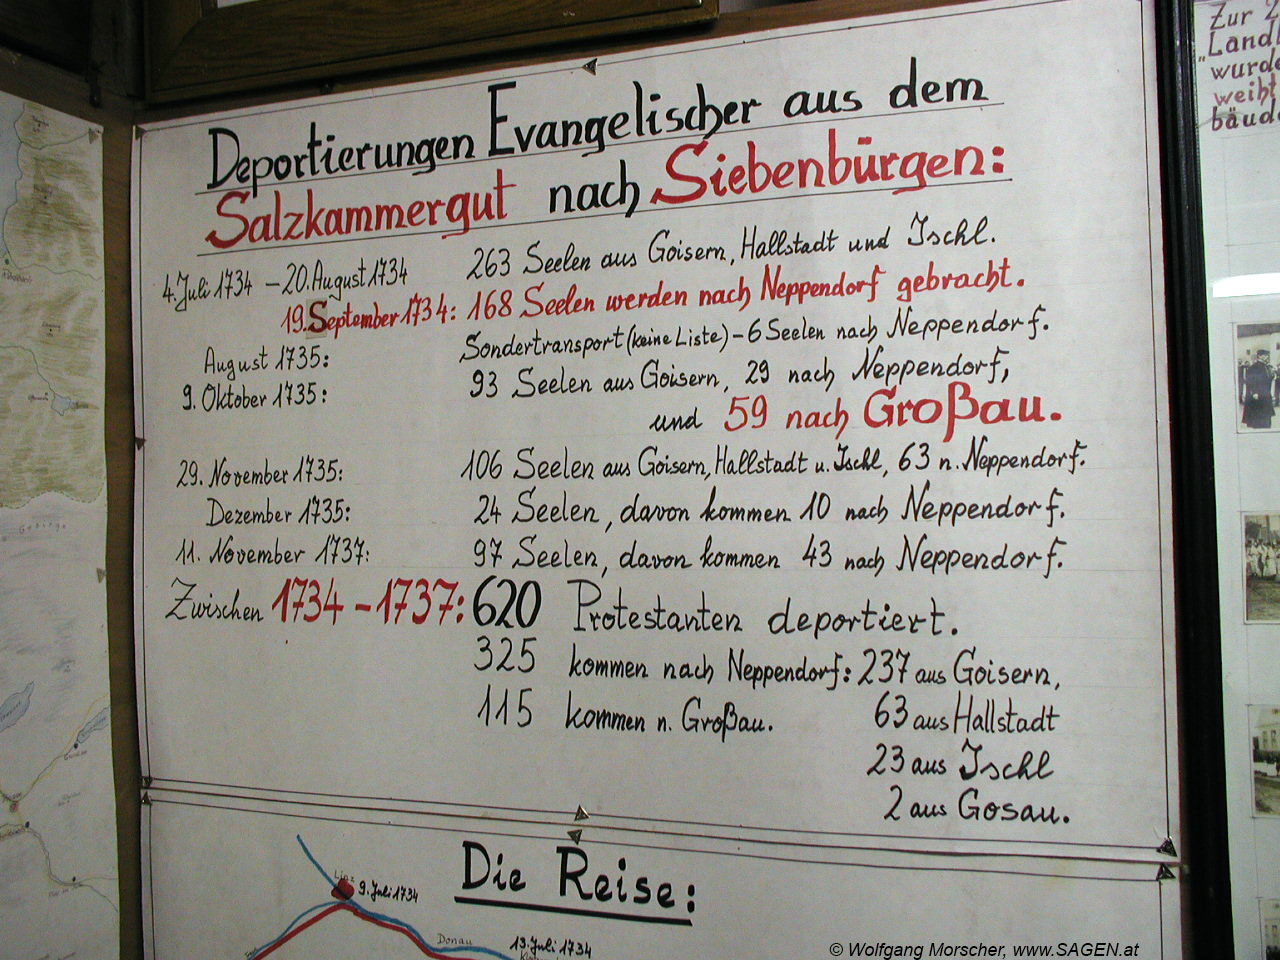 Deportierungen Evangelischer aus dem
Salzkammergut nach Siebenbürgen:
4. Juli 1734 – 20. August 1734 263 Seelen aus Goisern, Hallstadt und Ischl.
19. September 1734: 168 Seelen werden nach Neppendorf gebracht.
August 1735: Sondertransport (keine Liste) – 6 Seelen nach Neppendorf.
9. Oktober 1735: 93 Seelen aus Goisern, 29 nach Neppendorf,
und 59 nach Großau.
29. November 1735: 106 Seelen aus Goisern, Hallstadt u. Ischl, 63 n. Neppendorf.
Dezember 1735: 24 Seelen, davon kommen 10 nach Neppendorf.
11. November 1737: 97 Seelen, davon kommen 43 nach Neppendorf.
Zwischen 1734 – 1737: 620 Protestanten deportiert.
325 kommen nach Neppendorf: 237 aus Goisern,
115 kommen n. Großau. 63 aus Hallstadt
23 aus Ischl
2 aus Gosau.
Die Reise:
Linz 9. Juli 1734
Donau 13. Juli 1734
Zur
"Landl
wurde
weiht
bäude
© Wolfgang Morscher, www.SAGEN.at